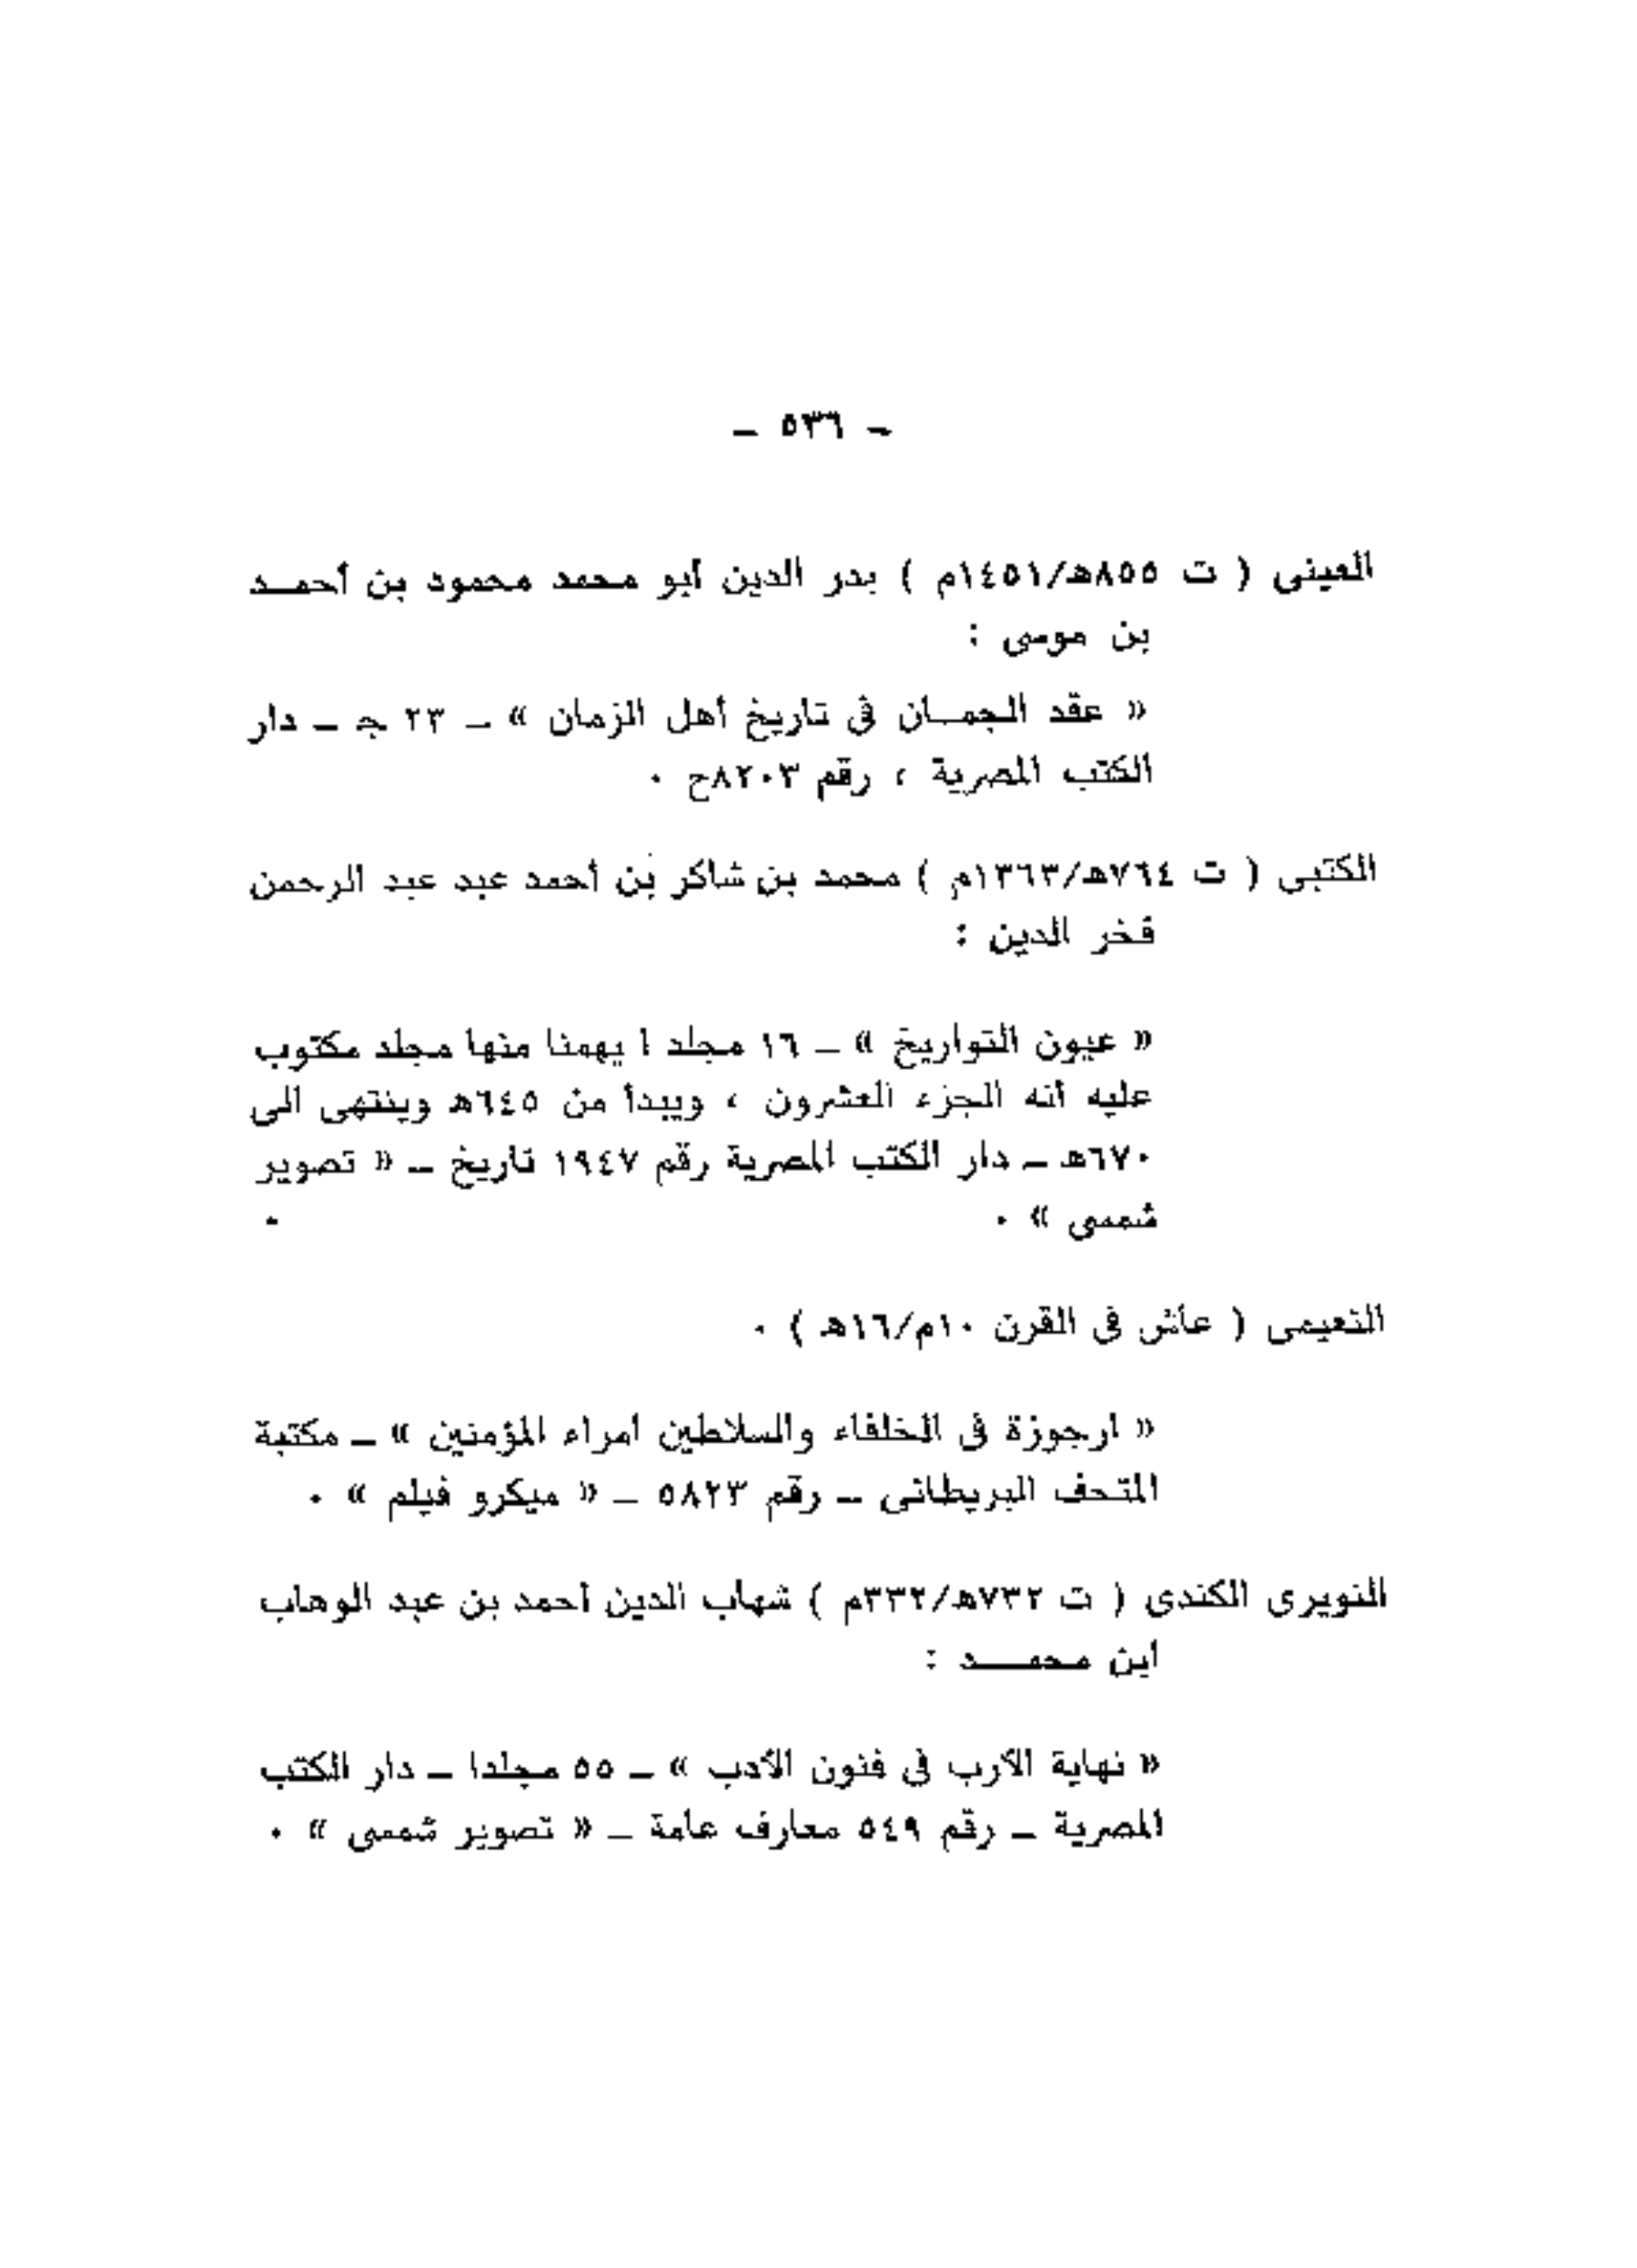 – ٥٣٦ –
العينى ( ت ٨٥٥هـ/١٤٥١م ) بدر الدين أبو محمد محمود بن أحمـد
بن موسى :
« عقد الجمـان فى تاريخ أهل الزمان » – ٢٣ جـ – دار
الكتب المصرية ، رقم ٨٢٠٣ح ٠
الكتبى ( ت ٧٦٤هـ/١٣٦٣م ) محمد بن شاكر بن أحمد عبد عبد الرحمن
فخر الدين :
« عيون التواريخ » – ١٦ مجلد ا يهمنا منها مجلد مكتوب
عليه أنه الجزء العشرون ، ويبدأ من ٦٤٥هـ وينتهى الى
٦٧٠هـ – دار الكتب المصرية رقم ١٩٤٧ تاريخ – « تصوير
شمسى » ٠
النعيمى ( عاش فى القرن ١٠م/١٦هـ ) ٠
« ارجوزة فى الخلفاء والسلاطين امراء المؤمنين » – مكتبة
المتحف البريطانى – رقم ٥٨٢٣ – « ميكرو فيلم » ٠
النويرى الكندى ( ت ٧٣٢هـ/٣٣٢م ) شهاب الدين أحمد بن عبد الوهاب
ابن محمـــد :
« نهاية الأرب فى فنون الأدب » – ٥٥ مجلدا – دار الكتب
المصرية – رقم ٥٤٩ معارف عامة – « تصوير شمسى » ٠